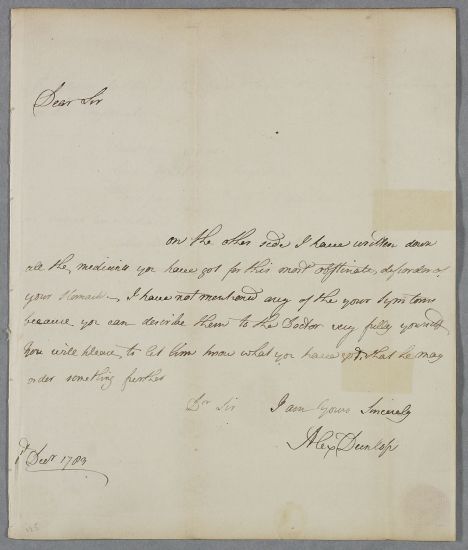 Dear Sir
on the other side I have written down
all the medicines you have got for this most obstinate disorder of
your Stomach. I have not mentioned any of the your Symptoms
because you can describe them to the Doctor very fully yourself
You will please to let him know what you have got, that he may
order something further
Dr Sir I am Yours Sincerely
Alexr Dunlop
1st Decr 1783